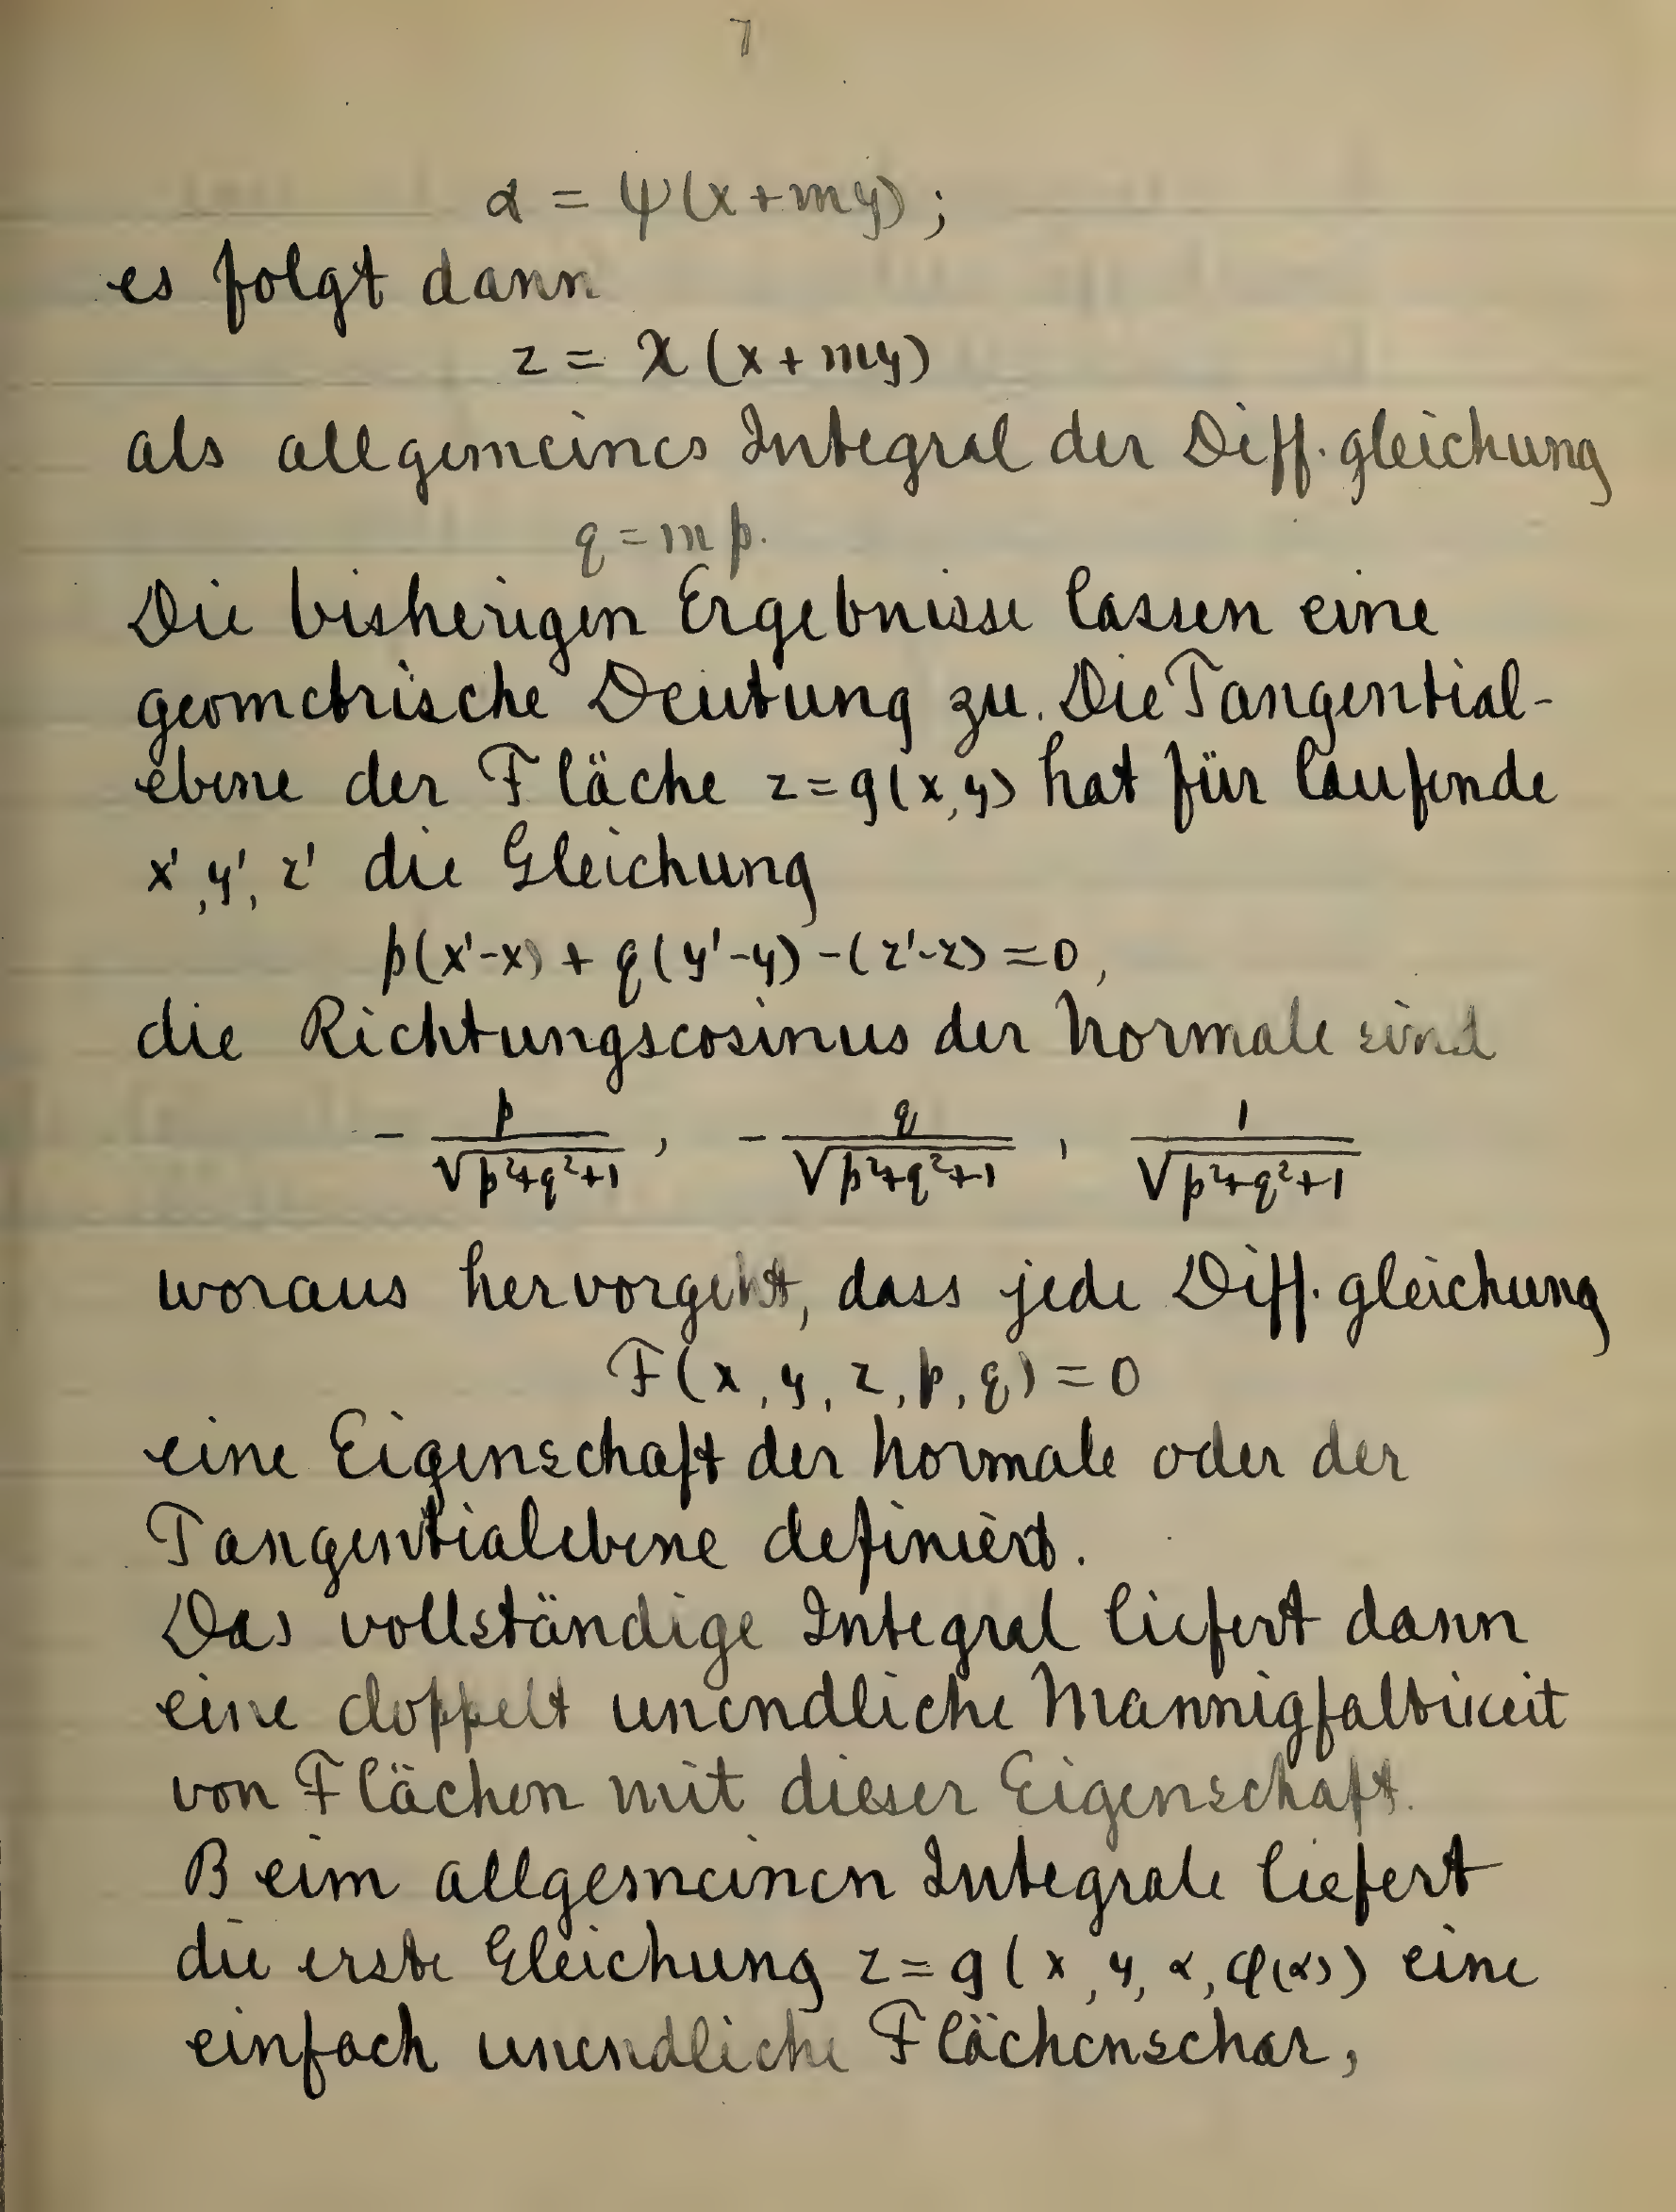 7
α = ψ(x+my);
es folgt dann
z = χ(x+my)
als allgemeines Integral der Diff.gleichung
q = mp.
Die bisherigen Ergebnisse lassen eine
geometrische Deutung zu. Die Tangential-
ebene der Fläche z=g(x,y) hat für laufende
x', y', z' die Gleichung
p(x'-x) + q(y'-y) -(z'-z) = 0,
die Richtungscosinus der Normale sind
- p/√(p²+q²+1), - q/√(p²+q²+1), 1/√(p²+q²+1)
woraus hervorgeht, dass jede Diff.gleichung
F(x, y, z, p, q) = 0
eine Eigenschaft der Normale oder der
Tangentialebene definiert.
Das vollständige Integral liefert dann
eine doppelt unendliche Mannigfaltikeit
von Flächen mit dieser Eigenschaft.
Beim allgemeinen Integrale liefert
die erste Gleichung z=g(x, y, α, φ(α)) eine
einfach unendliche Flächenschar,